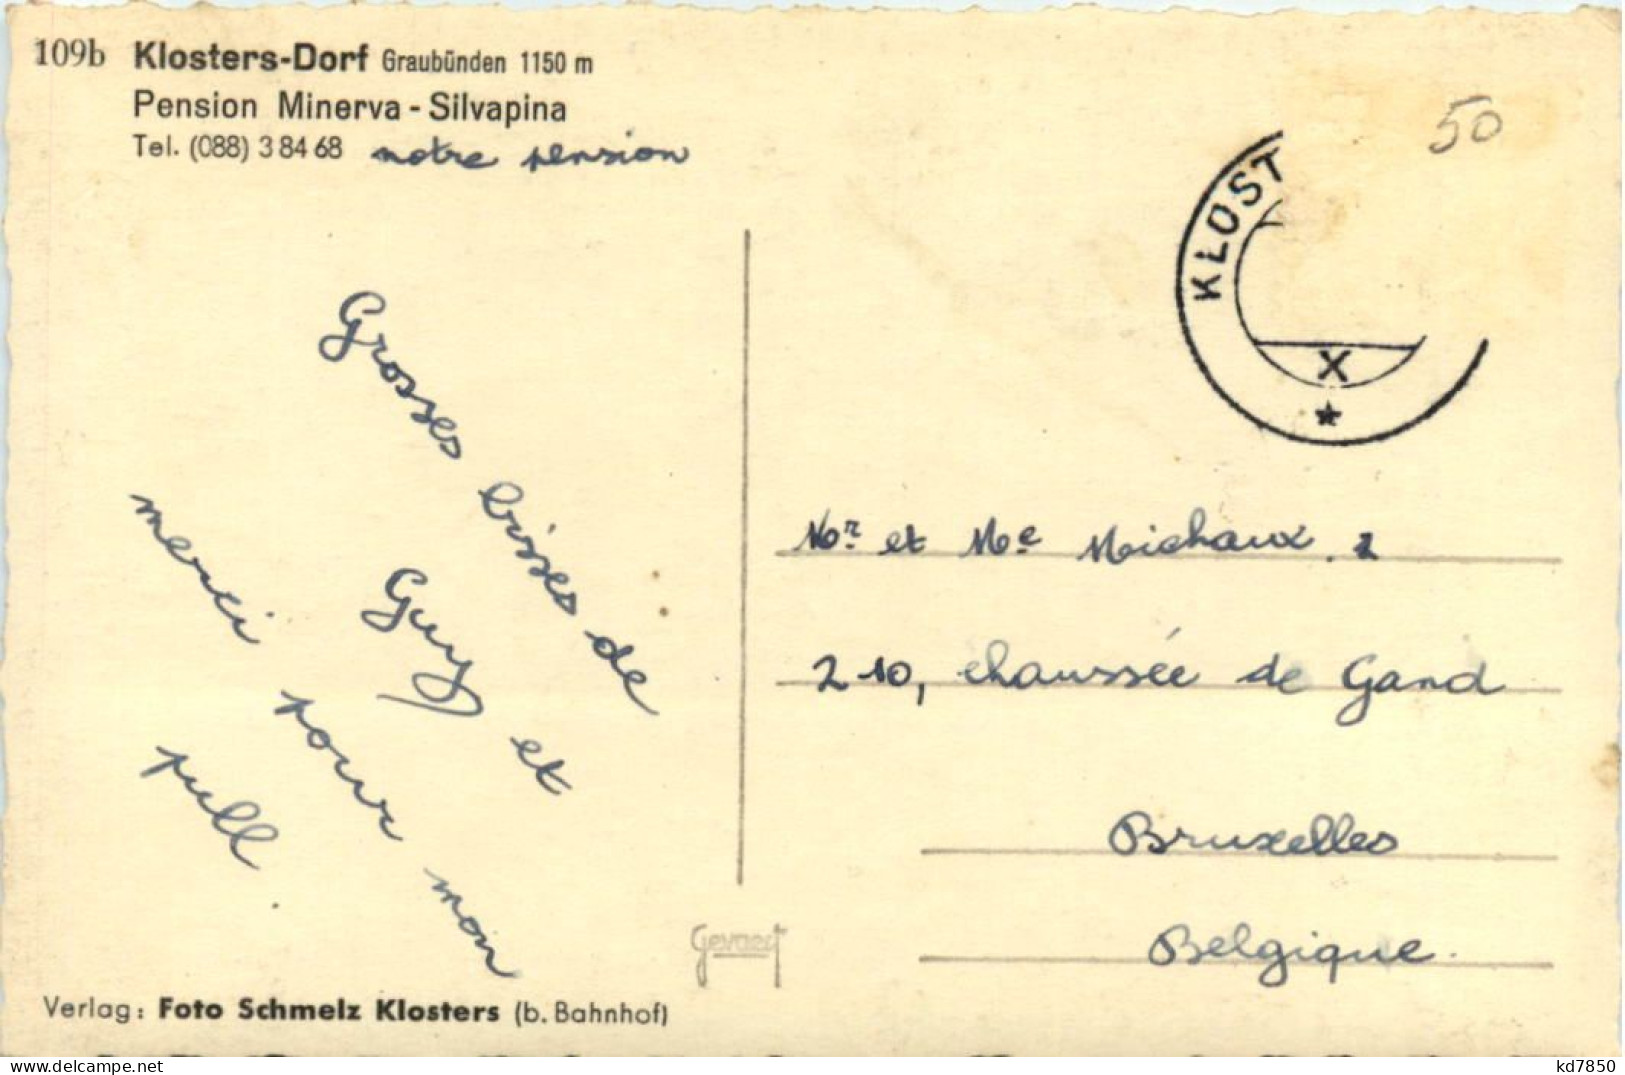 109b Klosters-Dorf Graubünden 1150 m
Pension Minerva - Silvapina
Tel. (088) 3 84 68 notre pension
50
KLOST
X
Grosses bises de
Guy et
merci pour mon
pull.
Mr et Me Michaux.
210, chaussée de Gand
Bruxelles
Belgique.
Gevaert
Verlag: Foto Schmelz Klosters (b. Bahnhof)
kd7850